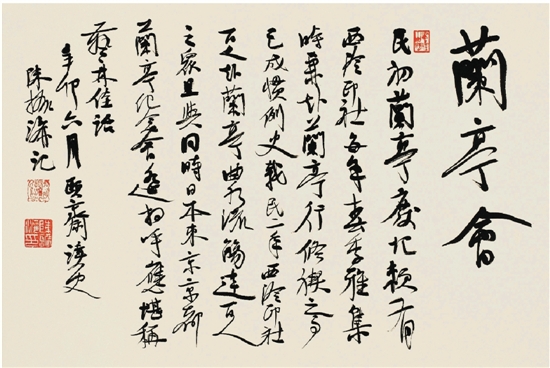 蘭亭會
民初蘭亭廢圮頗有
西泠印社每年春季雅集
時兼赴蘭亭行修禊之事
已成慣例史載民二年西泠印社
百人赴蘭亭曲水流觴達百人
之眾且與同時日本東京京都
蘭亭紀念會遙相呼應堪稱
藝林佳話
辛卯六月頤齋讀史
陳振濂記